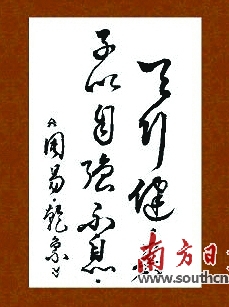 天行健
子以自强不息。
《周易·乾象》
南方日
www.southcn